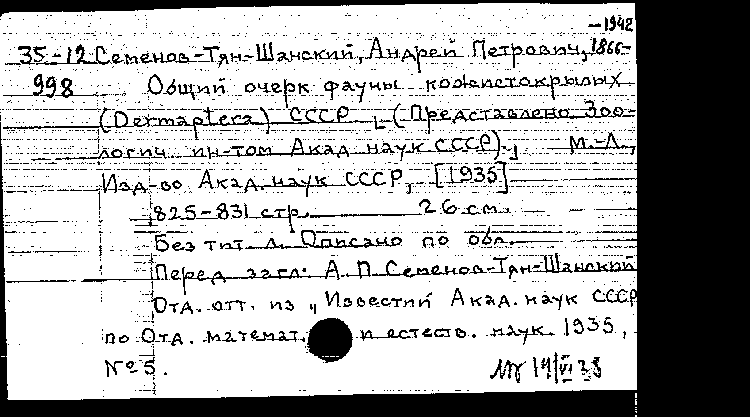 -1942
35-12 Семенов-Тян-Шанский, Андрей Петрович, 1866-
998 Общий очерк фауны кожистокрылых
(Dermaptera) СССР (Представлено Зоо-
логич. ин-том Акад. наук СССР). М.-Л.,
Изд-во Акад. наук СССР, [1935]
825-831 стр. 26 см.
Без тит. л. Описано по обл.
Перед загл: А. П. Семенов-Тян-Шанский
Отд. отт. из „Известий Акад. наук СССР
по Отд. математ. и естеств. наук. 1935,
№ 5.